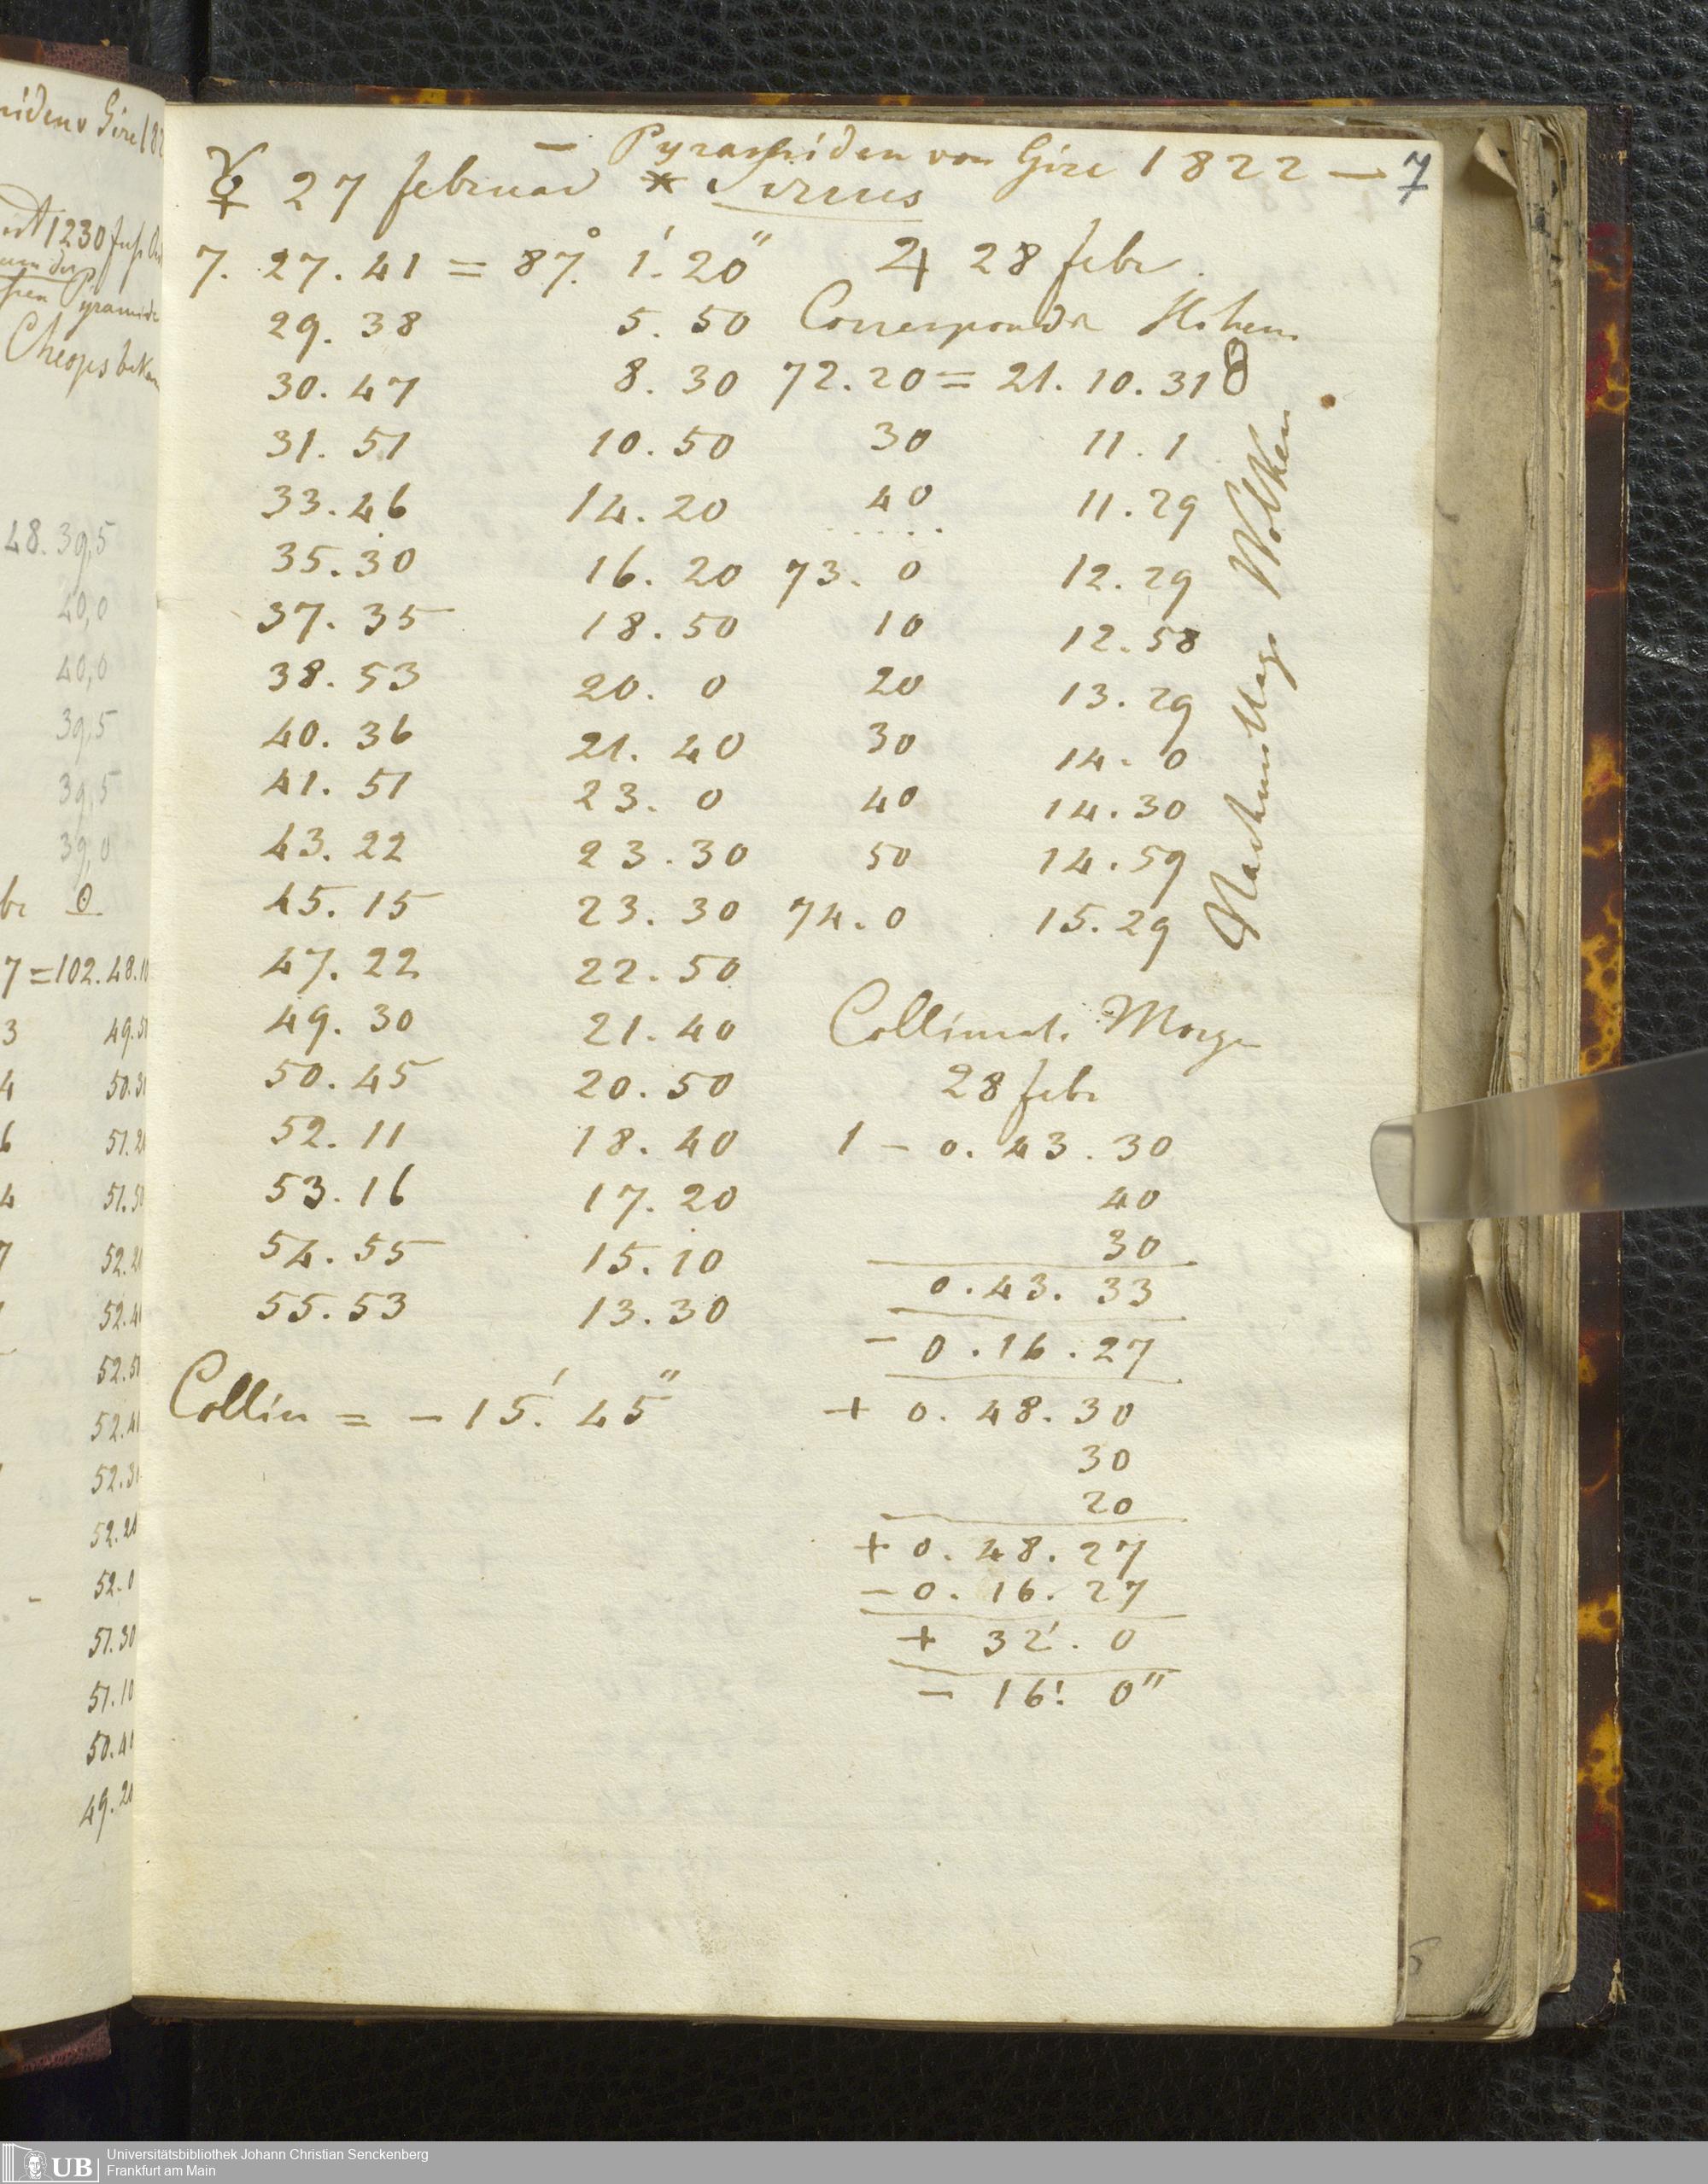 — Pyramiden von Gize 1822 — 7
☿ 27 februar * Sirius
7. 27. 41 = 87°. 1'. 20"
29. 38 5. 50
30. 47 8. 30
31. 51 10. 50
33. 46 14. 20
35. 30 16. 20
37. 35 18. 50
38. 53 20. 0
40. 36 21. 40
41. 51 23. 0
43. 22 23. 30
45. 15 23. 30
47. 22 22. 50
49. 30 21. 40
50. 45 20. 50
52. 11 18. 40
53. 16 17. 20
54. 55 15. 10
55. 53 13. 30
Collin = – 15'. 45"
♃ 28 febr.
Correspondr Höhen
72. 20 = 21. 10. 31
30 11. 1
40 11. 29
. . . .
73. 0 12. 29
10 12. 58
20 13. 29
30 14. 0
40 14. 30
50 14. 59
74. 0 15. 29
Nachmittags Wolken
Collimat. Morge
28 febr
1 – 0. 43. 30
40
30
0. 43. 33
– 0. 16. 27
+ 0. 48. 30
30
20
+ 0. 48. 27
– 0. 16. 27
+ 32'. 0
– 16'. 0"
1230
Pyramide
Cheops
48. 39,5
40,0
40,0
39,5
39,5
39,0
7 = 102. 48.
3 49.
4 50.
6 51.
4 51.
52.
52.
52.
52.
52.
52.
52. 0
51. 30
51. 10
50.
49.
UB
Universitätsbibliothek Johann Christian Senckenberg
Frankfurt am Main